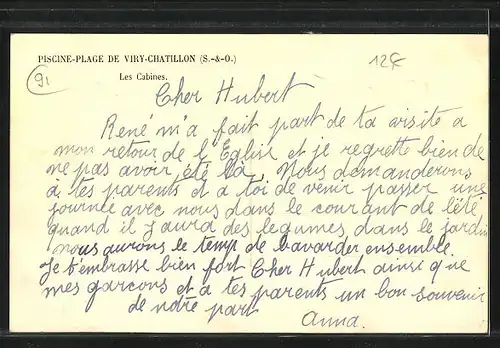 PISCINE-PLAGE DE VIRY-CHATILLON (S.-&-O.)
Les Cabines.
91
12€
Cher Hubert
René m'a fait part de ta visite a
mon retour de l'Eglise et je regrette bien de
ne pas avoir été là. Nous demanderons
a tes parents et a toi de venir passer une
journée avec nous dans le courant de l'été
quand il y aura des legumes dans le jardin
nous aurons le temp de bavarder ensemble.
Je t'embrasse bien fort Cher Hubert ainsi que
mes garcons et a tes parents un bon souvenir
de notre part
Anna.